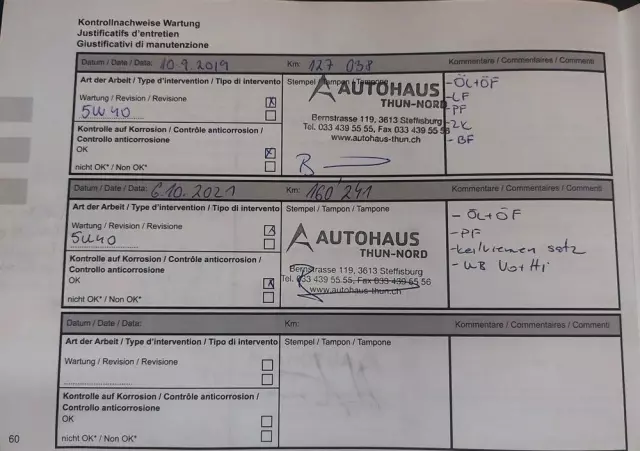 Kontrollnachweise Wartung
Justificatifs d'entretien
Giustificativi di manutenzione
Datum / Date / Data: 10.9.2019 Km: 127 038 Kommentare / Commentaires / Commenti
Art der Arbeit / Type d'intervention / Tipo di intervento Stempel / Tampon / Tampone
Wartung / Revision / Revisione
5W40
Kontrolle auf Korrosion / Contrôle anticorrosion /
Controllo anticorrosione
OK
nicht OK* / Non OK*
AUTOHAUS
THUN-NORD
Bernstrasse 119, 3613 Steffisburg
Tel. 033 439 55 55, Fax 033 439 55 56
www.autohaus-thun.ch
- ÖL+ÖF
- LF
- PF
- ZK
- BF
Datum / Date / Data: 6.10.2021 Km: 160'241 Kommentare / Commentaires / Commenti
Art der Arbeit / Type d'intervention / Tipo di intervento Stempel / Tampon / Tampone
Wartung / Revision / Revisione
5W40
Kontrolle auf Korrosion / Contrôle anticorrosion /
Controllo anticorrosione
OK
nicht OK* / Non OK*
AUTOHAUS
THUN-NORD
Bernstrasse 119, 3613 Steffisburg
Tel. 033 439 55 55, Fax 033 439 55 56
www.autohaus-thun.ch
- ÖL+ÖF
- PF
- keilriemen satz
- WB Vo+Hi
Datum / Date / Data: Km: Kommentare / Commentaires / Commenti
Art der Arbeit / Type d'intervention / Tipo di intervento Stempel / Tampon / Tampone
Wartung / Revision / Revisione
Kontrolle auf Korrosion / Contrôle anticorrosion /
Controllo anticorrosione
OK
nicht OK* / Non OK*
60